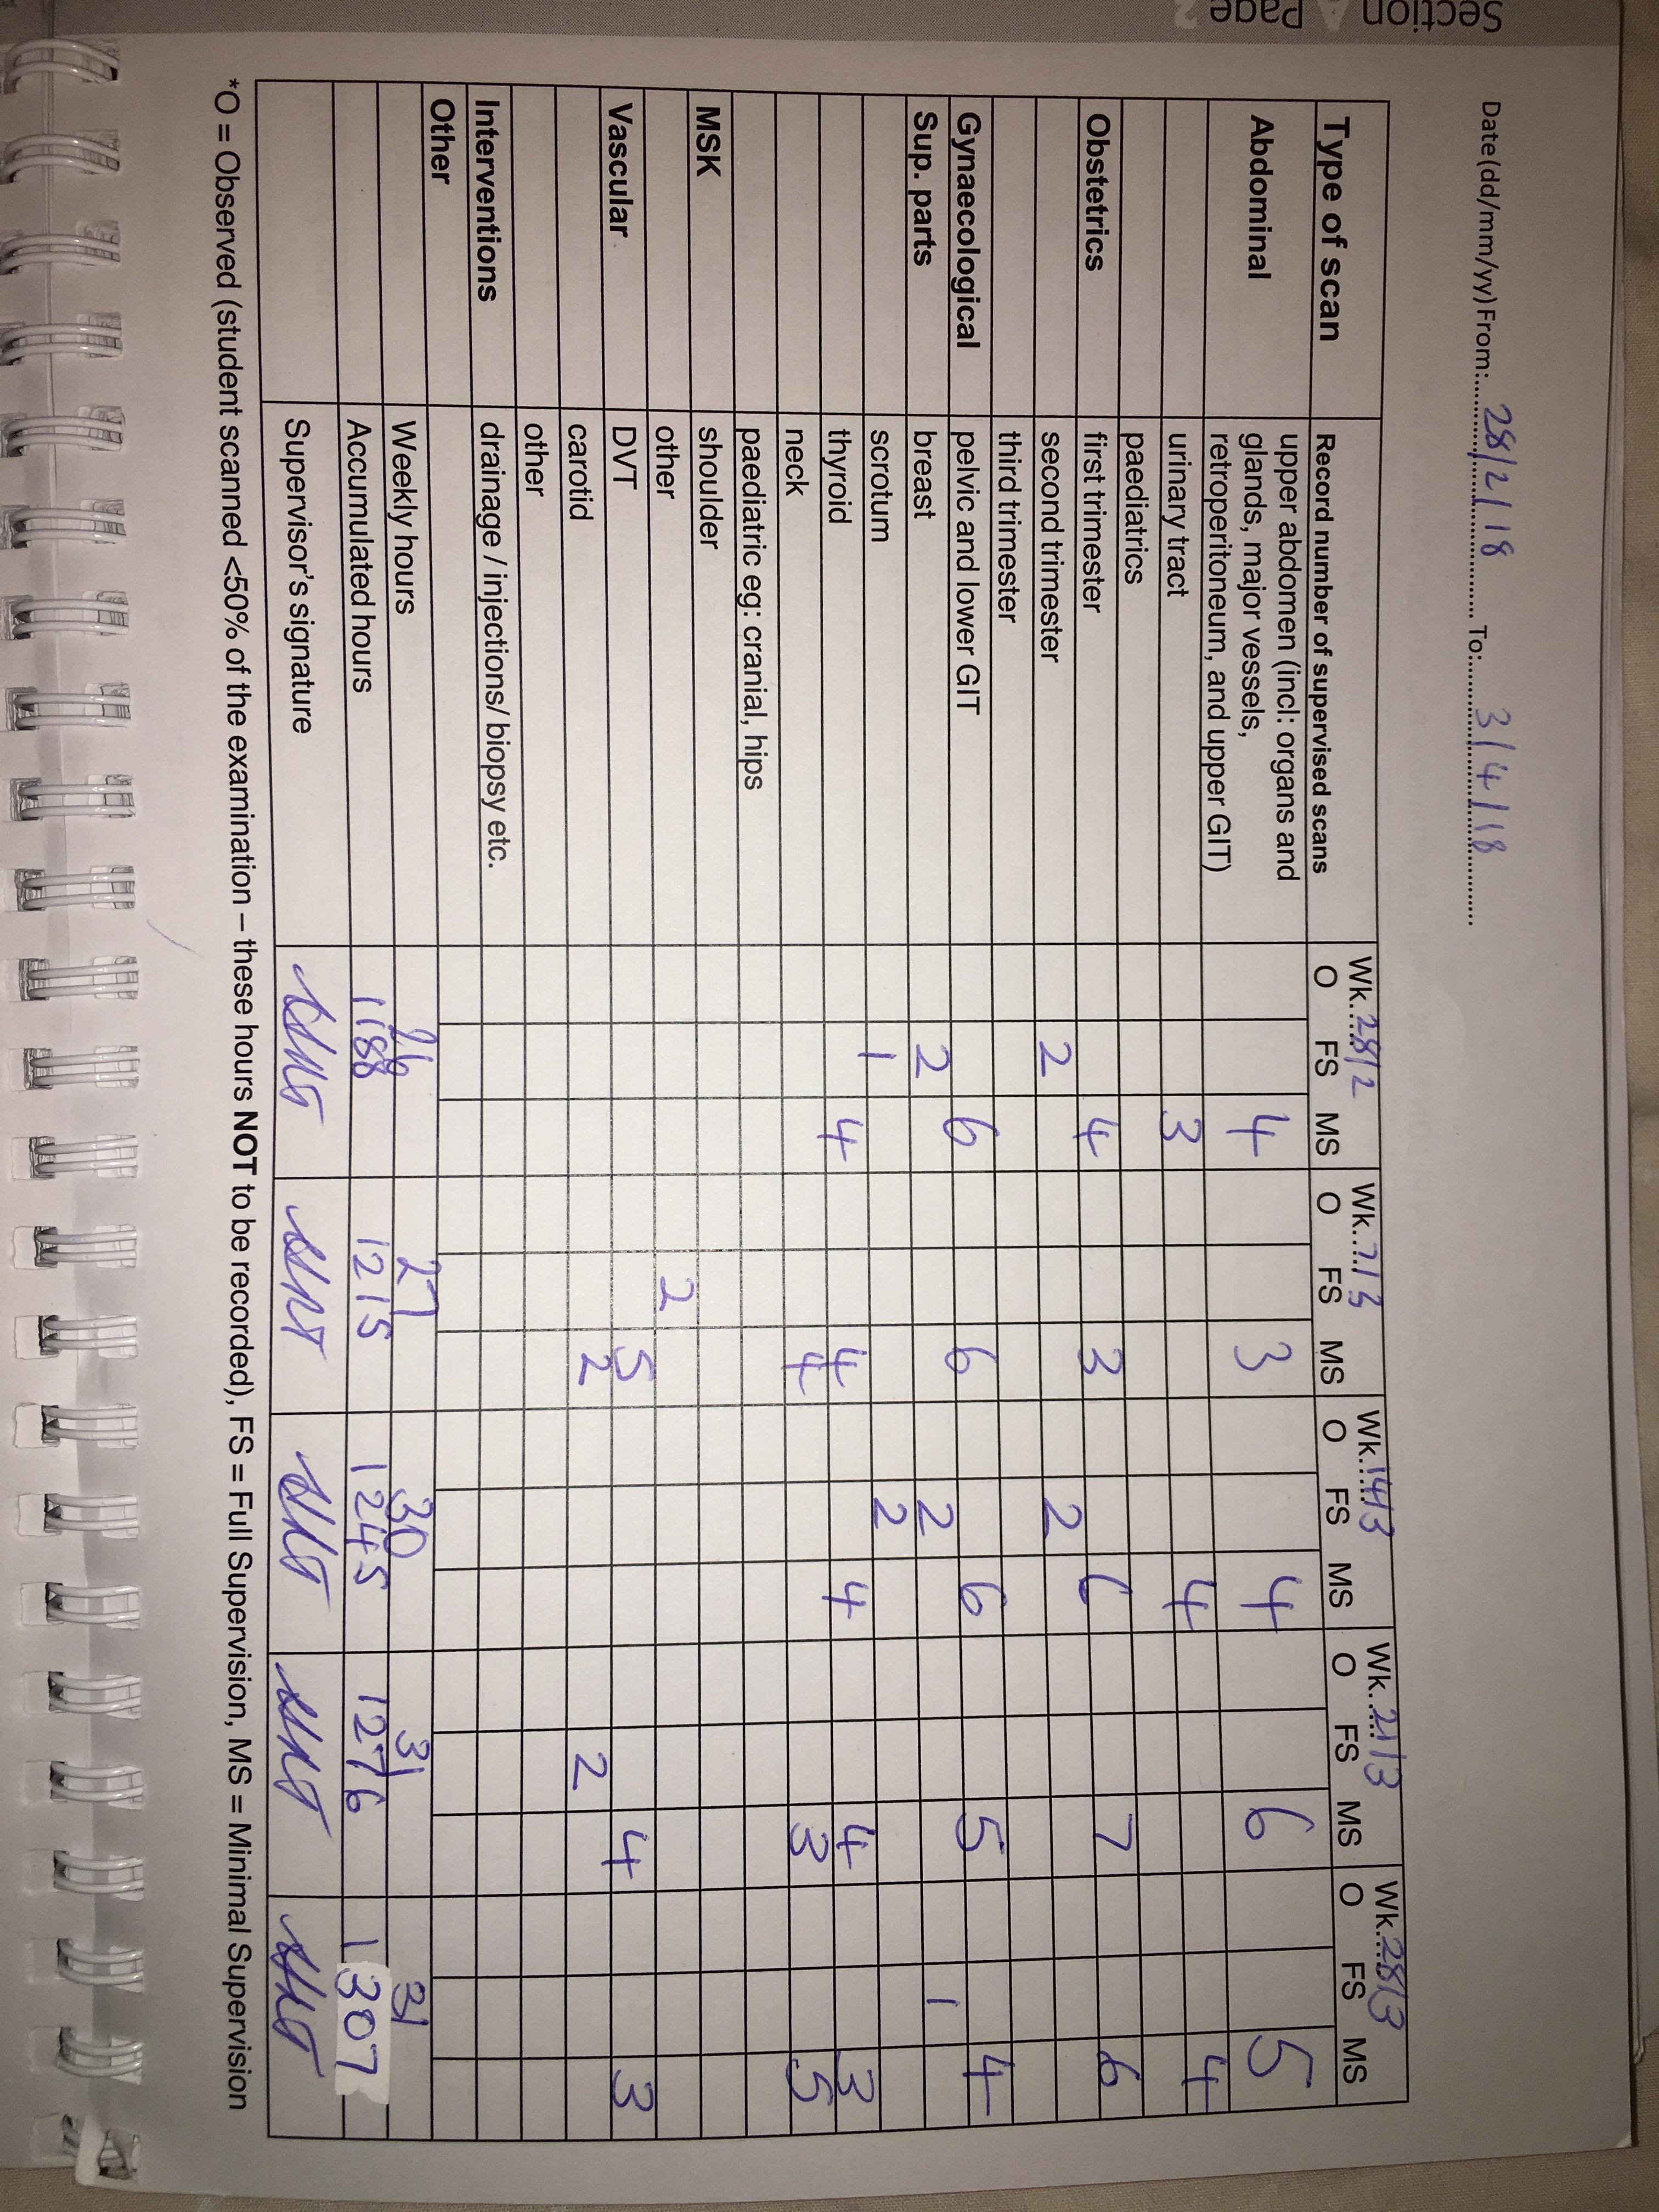 Section A Page 2
Date(dd/mm/yy) From:...28/2/18............... To:...3/4/18...............
Type of scan Record number of supervised scans Wk.28/2 Wk.7/3 Wk.14/3 Wk.21/3 Wk.28/3
O FS MS O FS MS O FS MS O FS MS O FS MS
Abdominal upper abdomen (incl: organs and
glands, major vessels,
retroperitoneum, and upper GIT) 4 3 4 6 5
urinary tract 3 4 4
paediatrics
Obstetrics first trimester 4 3 6 7 6
second trimester 2 2
third trimester
Gynaecological pelvic and lower GIT 6 6 6 5 4
Sup. parts breast 2 2 1
scrotum 1 2
thyroid 4 4 4 4 3
neck 4 3 5
paediatric eg: cranial, hips
MSK shoulder
other 2
Vascular DVT 5 4 3
carotid 2 2
other
Interventions drainage / injections/ biopsy etc.
Other
Weekly hours 26 27 30 31 31
Accumulated hours 1188 1215 1245 1276 1307
Supervisor's signature
*O = Observed (student scanned <50% of the examination – these hours NOT to be recorded), FS = Full Supervision, MS = Minimal Supervision